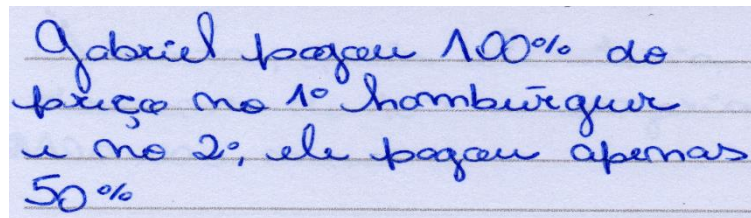 Gabriel pagou 100% do
preço no 1º hambúrguer
e no 2º, ele pagou apenas
50%